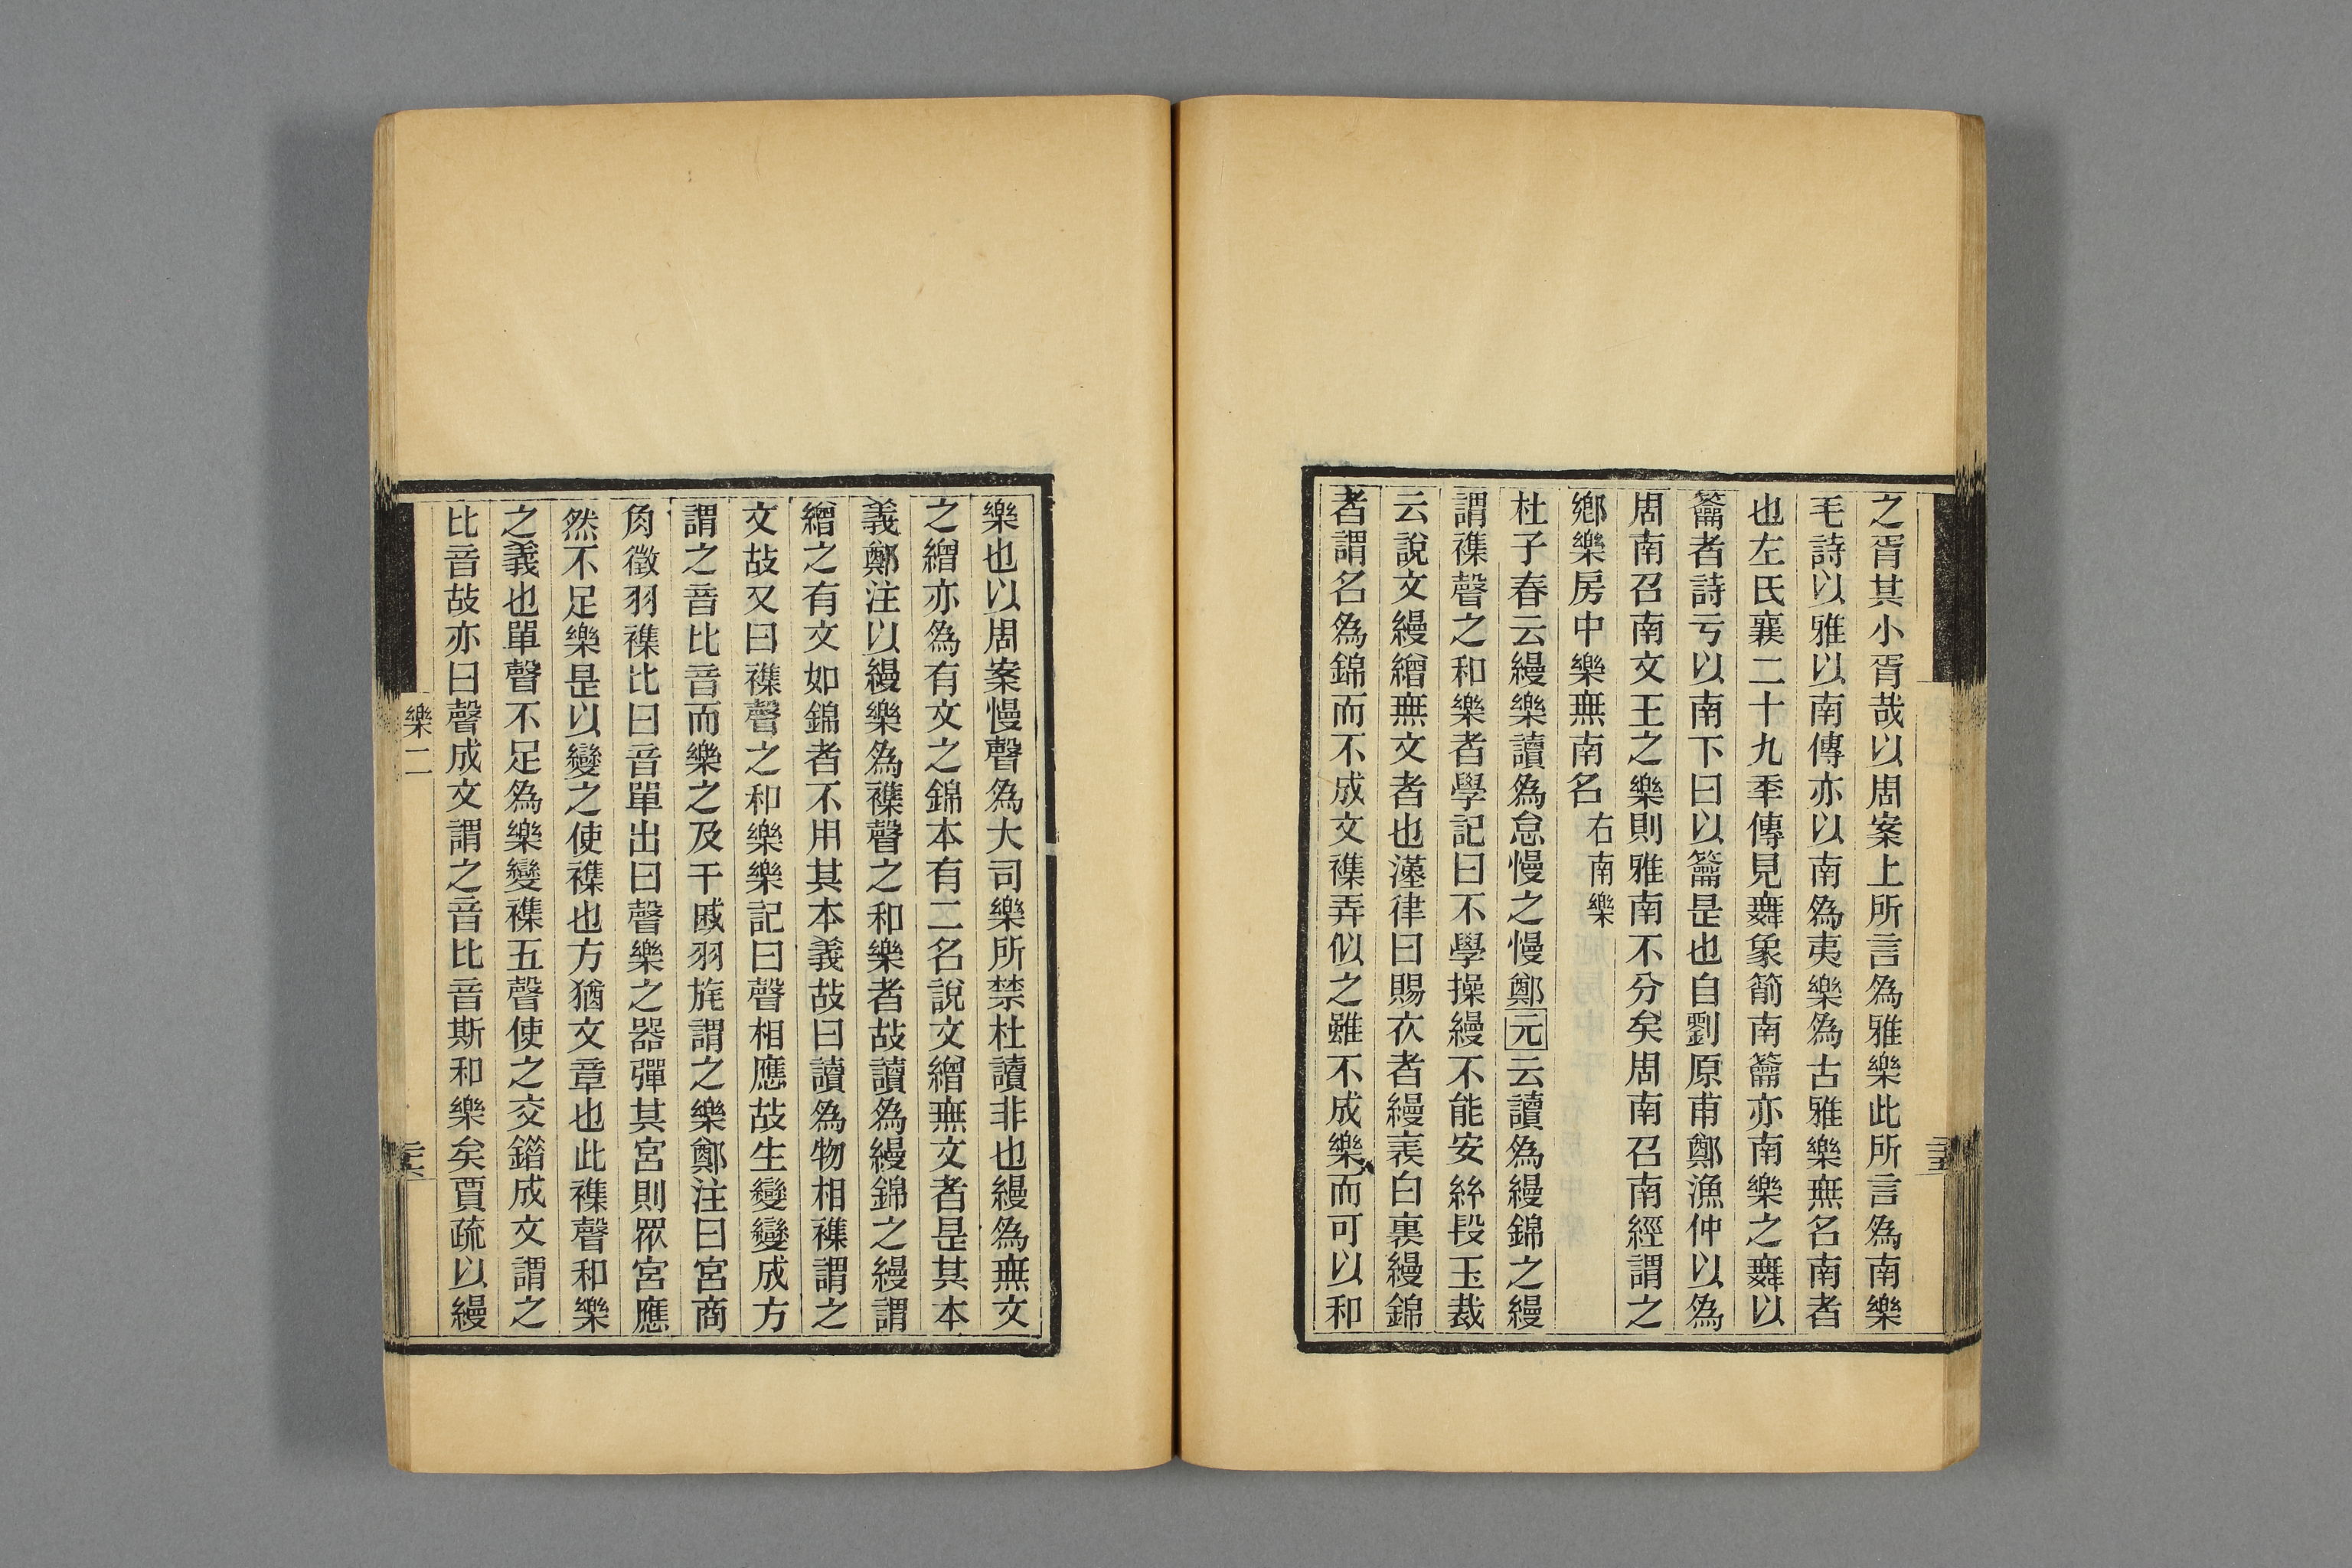 之胥其小胥哉以周案上所言為雅樂此所言為南樂
毛詩以雅以南傳亦以南為夷樂為古雅樂無名南者
也左氏襄二十九季傳見舞象箾南籥亦南樂之舞以
籥者詩亏以南下曰以籥是也自劉原甫鄭漁仲以為
周南召南文王之樂則雅南不分矣周南召南經謂之
鄉樂房中樂無南名 右南樂
杜子春云縵樂讀為怠慢之慢鄭元云讀為縵錦之縵
謂襍聲之和樂者學記曰不學操縵不能安絲段玉裁
云說文縵繒無文者也漢律曰賜衣者縵表白裏縵錦
者謂名為錦而不成文襍弄似之雖不成樂而可以和
樂也以周案慢聲為大司樂所禁杜讀非也縵為無文
之繒亦為有文之錦本有二名說文繒無文者是其本
義鄭注以縵樂為襍聲之和樂者故讀為縵錦之縵謂
繒之有文如錦者不用其本義故曰讀為物相襍謂之
文故又曰襍聲之和樂樂記曰聲相應故生變變成方
謂之音比音而樂之及干戚羽旄謂之樂鄭注曰宮商
角徵羽襍比曰音單出曰聲樂之器彈其宮則眾宮應
然不足樂是以變之使襍也方猶文章也此襍聲和樂
之義也單聲不足為樂變襍五聲使之交錯成文謂之
比音故亦曰聲成文謂之音比音斯和樂矣賈疏以縵
樂二